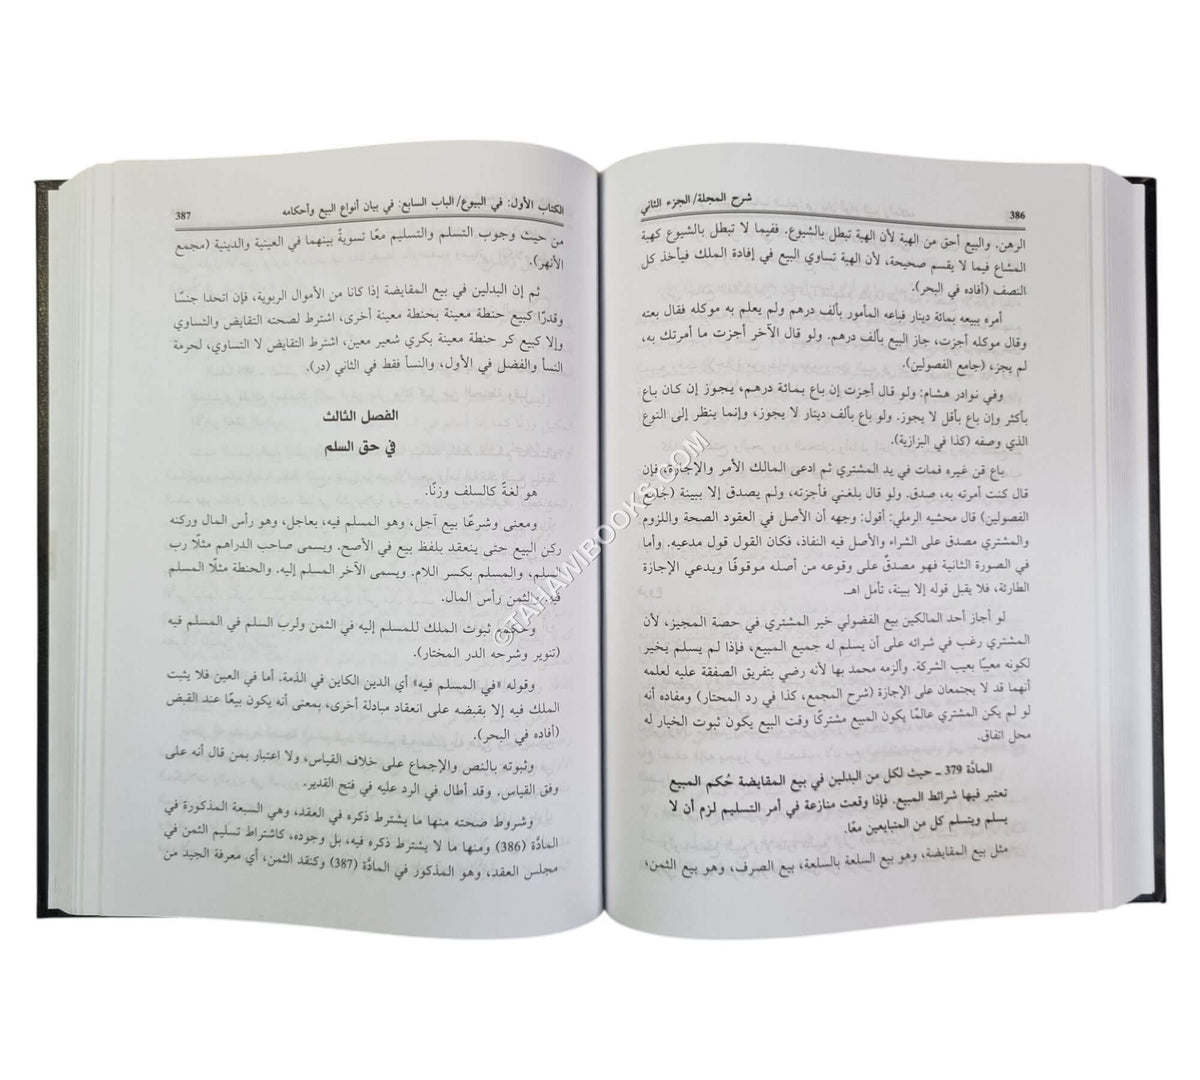 386
شرح المجلة/الجزء الثاني
الرهن. والبيع أحق من الهبة لأن الهبة تبطل بالشيوع. ففيما لا تبطل بالشيوع كهبة
المشاع فيما لا يقسم صحيحة، لأن الهبة تساوي البيع في إفادة الملك فيأخذ كل
النصف (أفاده في البحر).
أمره ببيعه بمائة دينار فباعه المأمور بألف درهم ولم يعلم به موكله فقال بعته
وقال موكله أجزت، جاز البيع بألف درهم. ولو قال الآخر أجزت ما أمرتك به،
لم يجز، (جامع الفصولين).
وفي نوادر هشام: ولو قال أجزت إن باع بمائة درهم، يجوز إن كان باع
بأكثر وإن باع بأقل لا يجوز. ولو باع بألف دينار لا يجوز، وإنما ينظر إلى النوع
الذي وصفه (كذا في البزازية).
باع قن غيره فمات في يد المشتري ثم ادعى المالك الأمر والإجازة، فإن
قال كنت أمرته به، صدق. ولو قال بلغني فأجزته، ولم يصدق إلا ببينة (جامع
الفصولين) قال محشيه الرملي: أقول: وجهه أن الأصل في العقود الصحة واللزوم
والمشتري مصدق على الشراء والأصل فيه النفاذ، فكان القول قول مدعيه. وأما
في الصورة الثانية فهو مصدقٌ على وقوعه من أصله موقوفًا ويدعي الإجازة
الطارئة، فلا يقبل قوله إلا ببينة، تأمل اهـ.
لو أجاز أحد المالكين بيع الفضولي خير المشتري في حصة المجيز، لأن
المشتري رغب في شرائه على أن يسلم له جميع المبيع، فإذا لم يسلم يخير
لكونه معيبًا بعيب الشركة. وألزمه محمد بها لأنه رضي بتفريق الصفقة عليه لعلمه
أنهما قد لا يجتمعان على الإجازة (شرح المجمع، كذا في رد المحتار) ومفاده أنه
لو لم يكن المشتري عالمًا يكون المبيع مشتركًا وقت البيع يكون ثبوت الخيار له
محل اتفاق.
المادَّة 379 ـ حيث لكل من البدلين في بيع المقايضة حُكم المبيع
تعتبر فيها شرائط المبيع. فإذا وقعت منازعة في أمر التسليم لزم أن لا
يسلم ويتسلم كل من المتبايعين معًا.
مثل بيع المقايضة، وهو بيع السلعة بالسلعة، بيع الصرف، وهو بيع الثمن،
الكتاب الأول: في البيوع/الباب السابع: في بيان أنواع البيع وأحكامه
387
من حيث وجوب التسلم والتسليم معًا تسويةً بينهما في العينية والدينية (مجمع
الأنهر).
ثم إن البدلين في بيع المقايضة إذا كانا من الأموال الربوية، فإن اتحدا جنسًا
وقدرًا كبيع حنطة معينة بحنطة معينة أخرى، اشترط لصحته التقابض والتساوي
وإلا كبيع كر حنطة معينة بكري شعير معين، اشترط التقابض لا التساوي، لحرمة
النسأ والفضل في الأول، والنسأ فقط في الثاني (در).
الفصل الثالث
في حق السلم
هو لغةً كالسلف وزنًا.
ومعنى وشرعًا بيع آجل، وهو المسلم فيه، بعاجل، وهو رأس المال وركنه
ركن البيع حتى ينعقد بلفظ بيع في الأصح. ويسمى صاحب الدراهم مثلًا رب
السلم، والمسلم بكسر اللام. ويسمى الآخر المسلم إليه. والحنطة مثلًا المسلم
فيه. والثمن رأس المال.
وحكمه ثبوت الملك للمسلم إليه في الثمن ولرب السلم في المسلم فيه
(تنوير وشرحه الدر المختار).
وقوله «في المسلم فيه» أي الدين الكاين في الذمة. أما في العين فلا يثبت
الملك فيه إلا بقبضه على انعقاد مبادلة أخرى، بمعنى أنه يكون بيعًا عند القبض
(أفاده في البحر).
وثبوته بالنص والإجماع على خلاف القياس، ولا اعتبار بمن قال أنه على
وفق القياس. وقد أطال في الرد عليه في فتح القدير.
وشروط صحته منها ما يشترط ذكره في العقد، وهي السبعة المذكورة في
المادَّة (386) ومنها ما لا يشترط ذكره فيه، بل وجوده، كاشتراط تسليم الثمن في
مجلس العقد، وهو المذكور في المادَّة (387) وكنقد الثمن، أي معرفة الجيد من
©TAHAWIBOOKS.COM